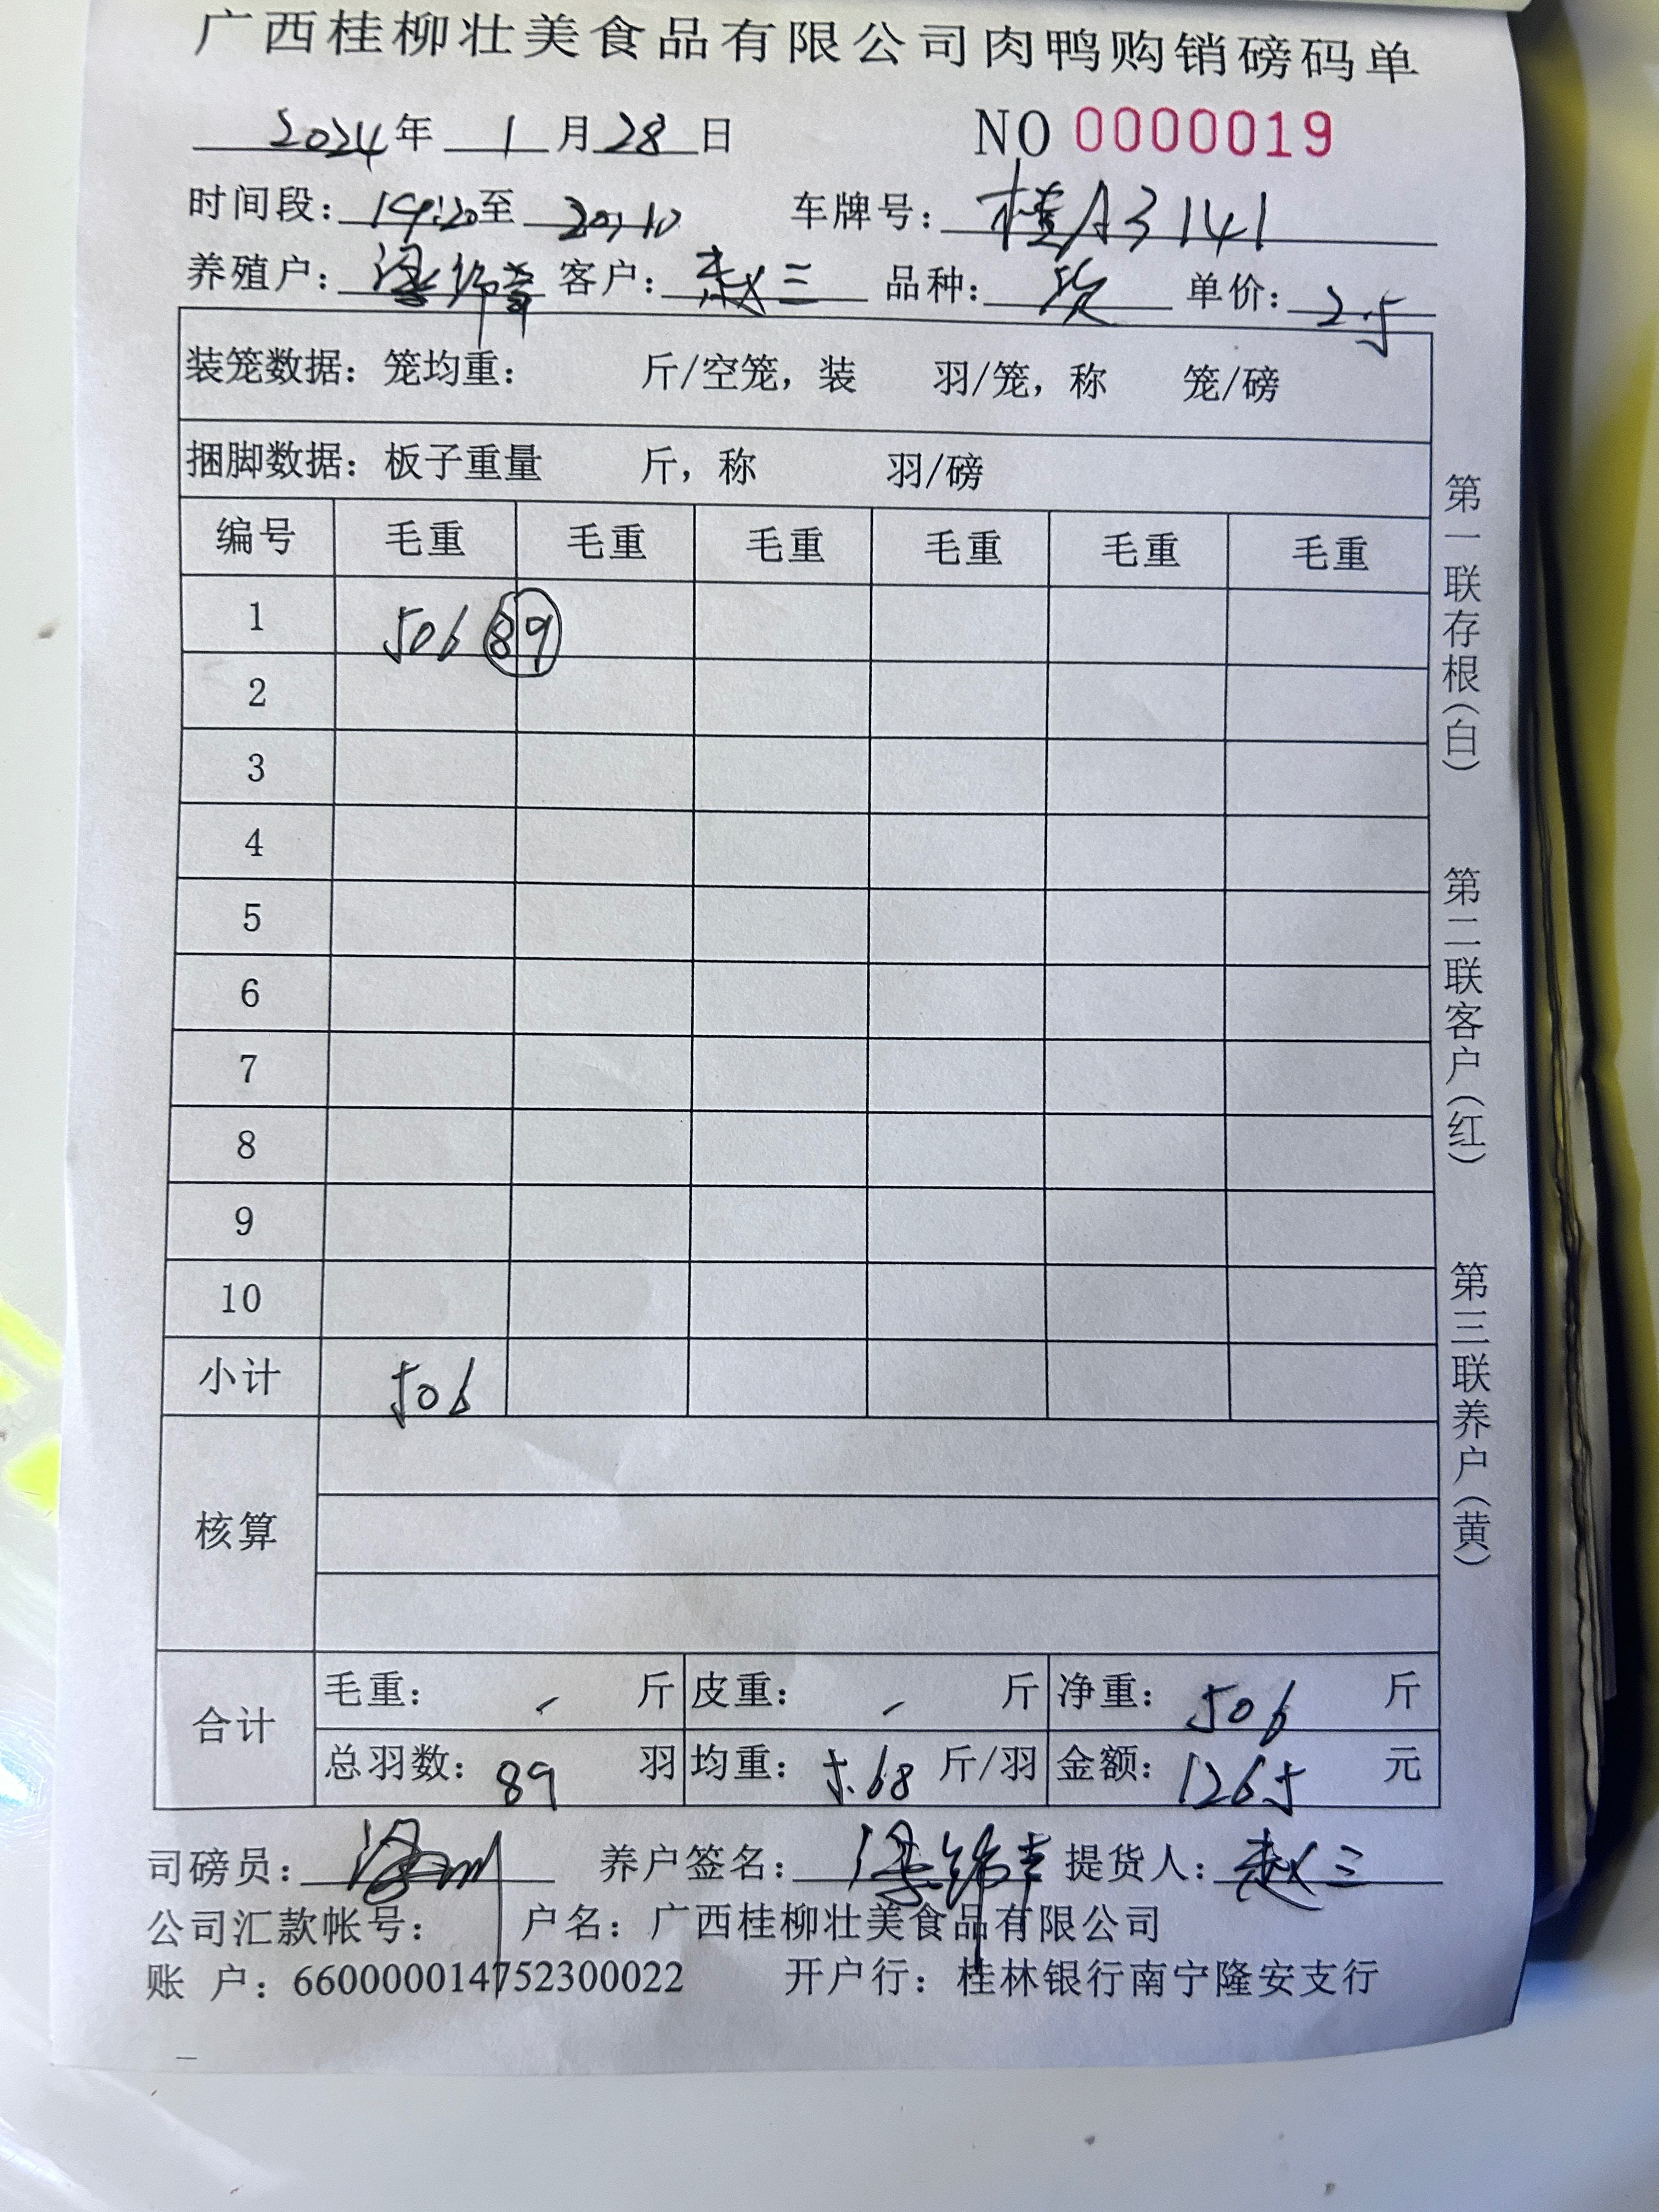 广西桂柳壮美食品有限公司肉鸭购销磅码单
2024年 1月28日 NO 0000019
时间段：19:20至 20:10 车牌号：桂A3141
养殖户： 客户：赵三 品种： 单价：2.5
装笼数据：笼均重： 斤/空笼，装 羽/笼，称 笼/磅
捆脚数据：板子重量 斤，称 羽/磅
编号 毛重 毛重 毛重 毛重 毛重 毛重
1 506 89
2
3
4
5
6
7
8
9
10
小计 506
核算
合计 毛重： 斤 皮重： 斤 净重：506 斤
总羽数：89 羽 均重：5.68 斤/羽 金额：1265 元
司磅员： 养户签名： 提货人：赵三
公司汇款帐号： 户名：广西桂柳壮美食品有限公司
账 户：660000014752300022 开户行：桂林银行南宁隆安支行
第一联存根（白） 第二联客户（红） 第三联养户（黄）